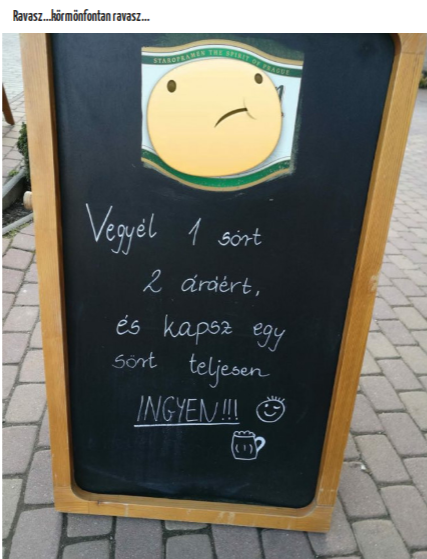 Ravasz...körmönfontan ravasz...
STAROPRAMEN THE SPIRIT OF PRAGUE
Vegyél 1 sört
2 áráért,
és kapsz egy
sört teljesen
INGYEN!!!